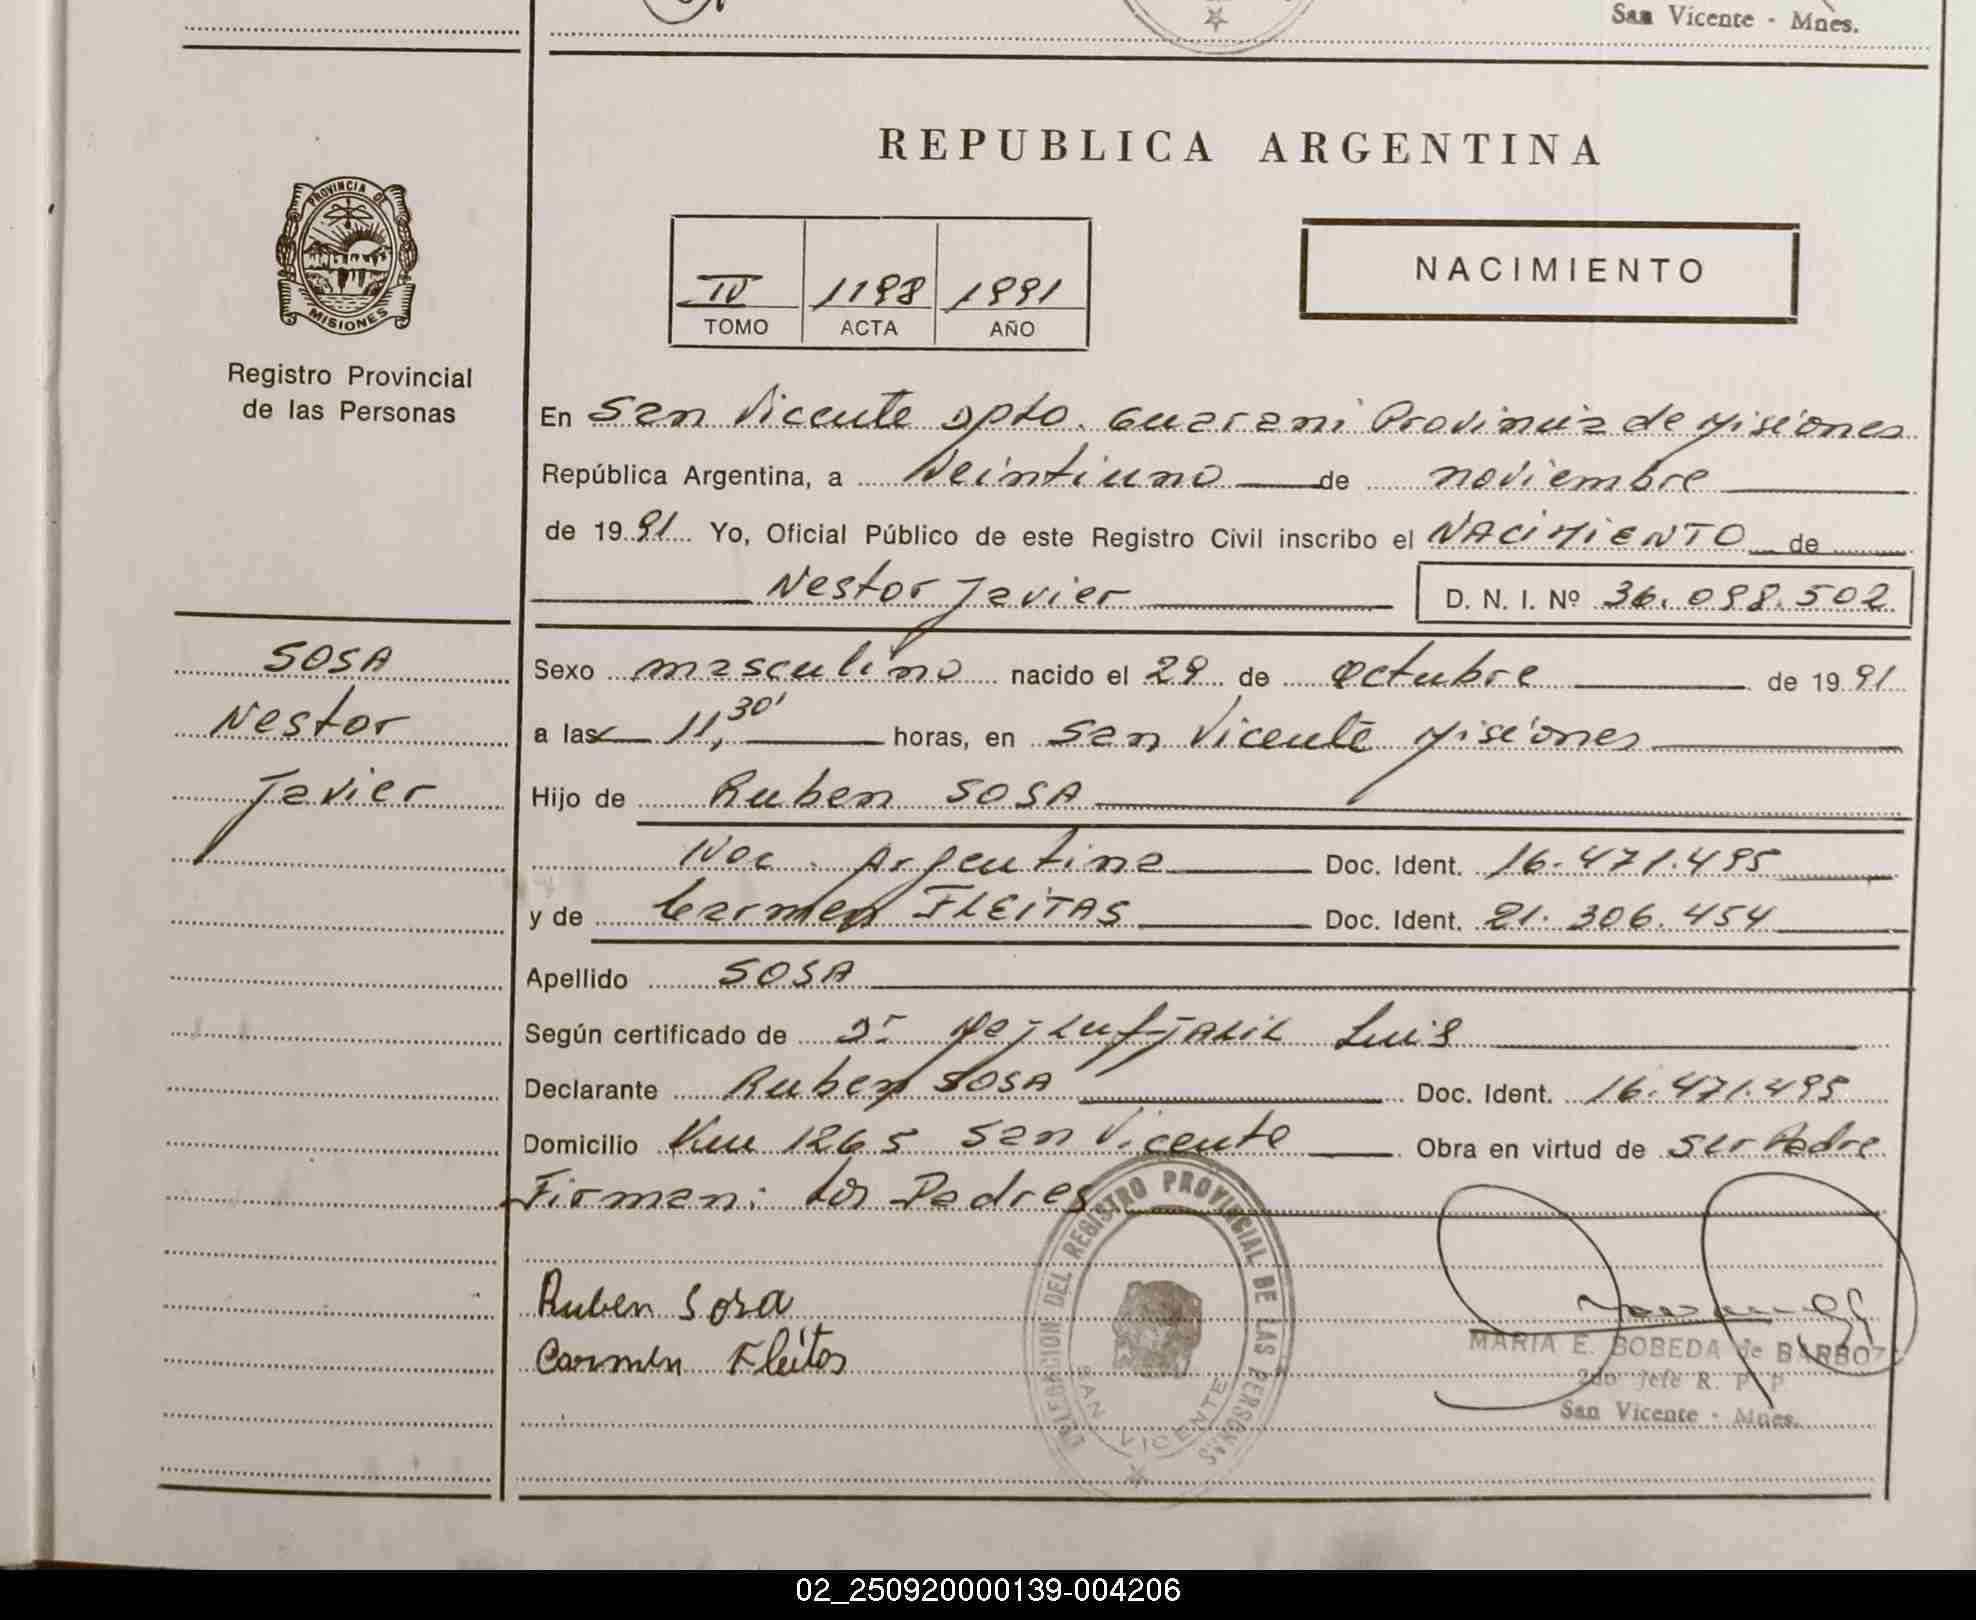 San Vicente - Mnes.
REPUBLICA ARGENTINA
PROVINCIA DE
MISIONES
Registro Provincial
de las Personas
IV 1198 1991
TOMO ACTA AÑO
NACIMIENTO
En San Vicente Dpto. Guarani Provincia de Misiones
República Argentina, a Veintiuno de noviembre
de 1991 Yo, Oficial Público de este Registro Civil inscribo el NACIMIENTO de
Nestor Javier D. N. I. Nº 36.098.502
SOSA
Nestor
Javier
Sexo masculino nacido el 29 de octubre de 1991
a las 11,30' horas, en San Vicente Misiones
Hijo de Ruben SOSA
Nac. Argentina Doc. Ident. 16.471.495
y de Carmen FLEITAS Doc. Ident. 21.306.454
Apellido SOSA
Según certificado de Dr Luis
Declarante Ruben SOSA Doc. Ident. 16.471.495
Domicilio Km 1265 San Vicente Obra en virtud de ser Padre
Firman: Los Padres
Ruben Sosa
Carmen Fleitas
DELEGACION DEL REGISTRO PROVINCIAL DE LAS PERSONAS
SAN VICENTE
MARIA E. BOBEDA de BARBOZ
2do Jefe R. P. P.
San Vicente - Mnes.
02_250920000139-004206